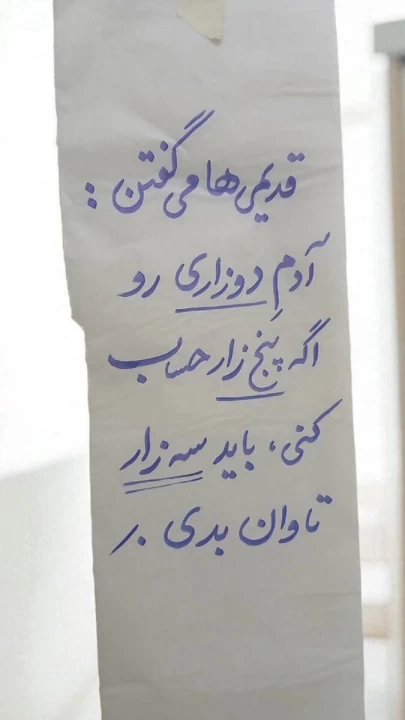 قدیمی‌ها می‌گفتن :
آدمِ دوزاری رو
اگه پنج زار حساب
کنی، باید سه زار
تاوان بدی .